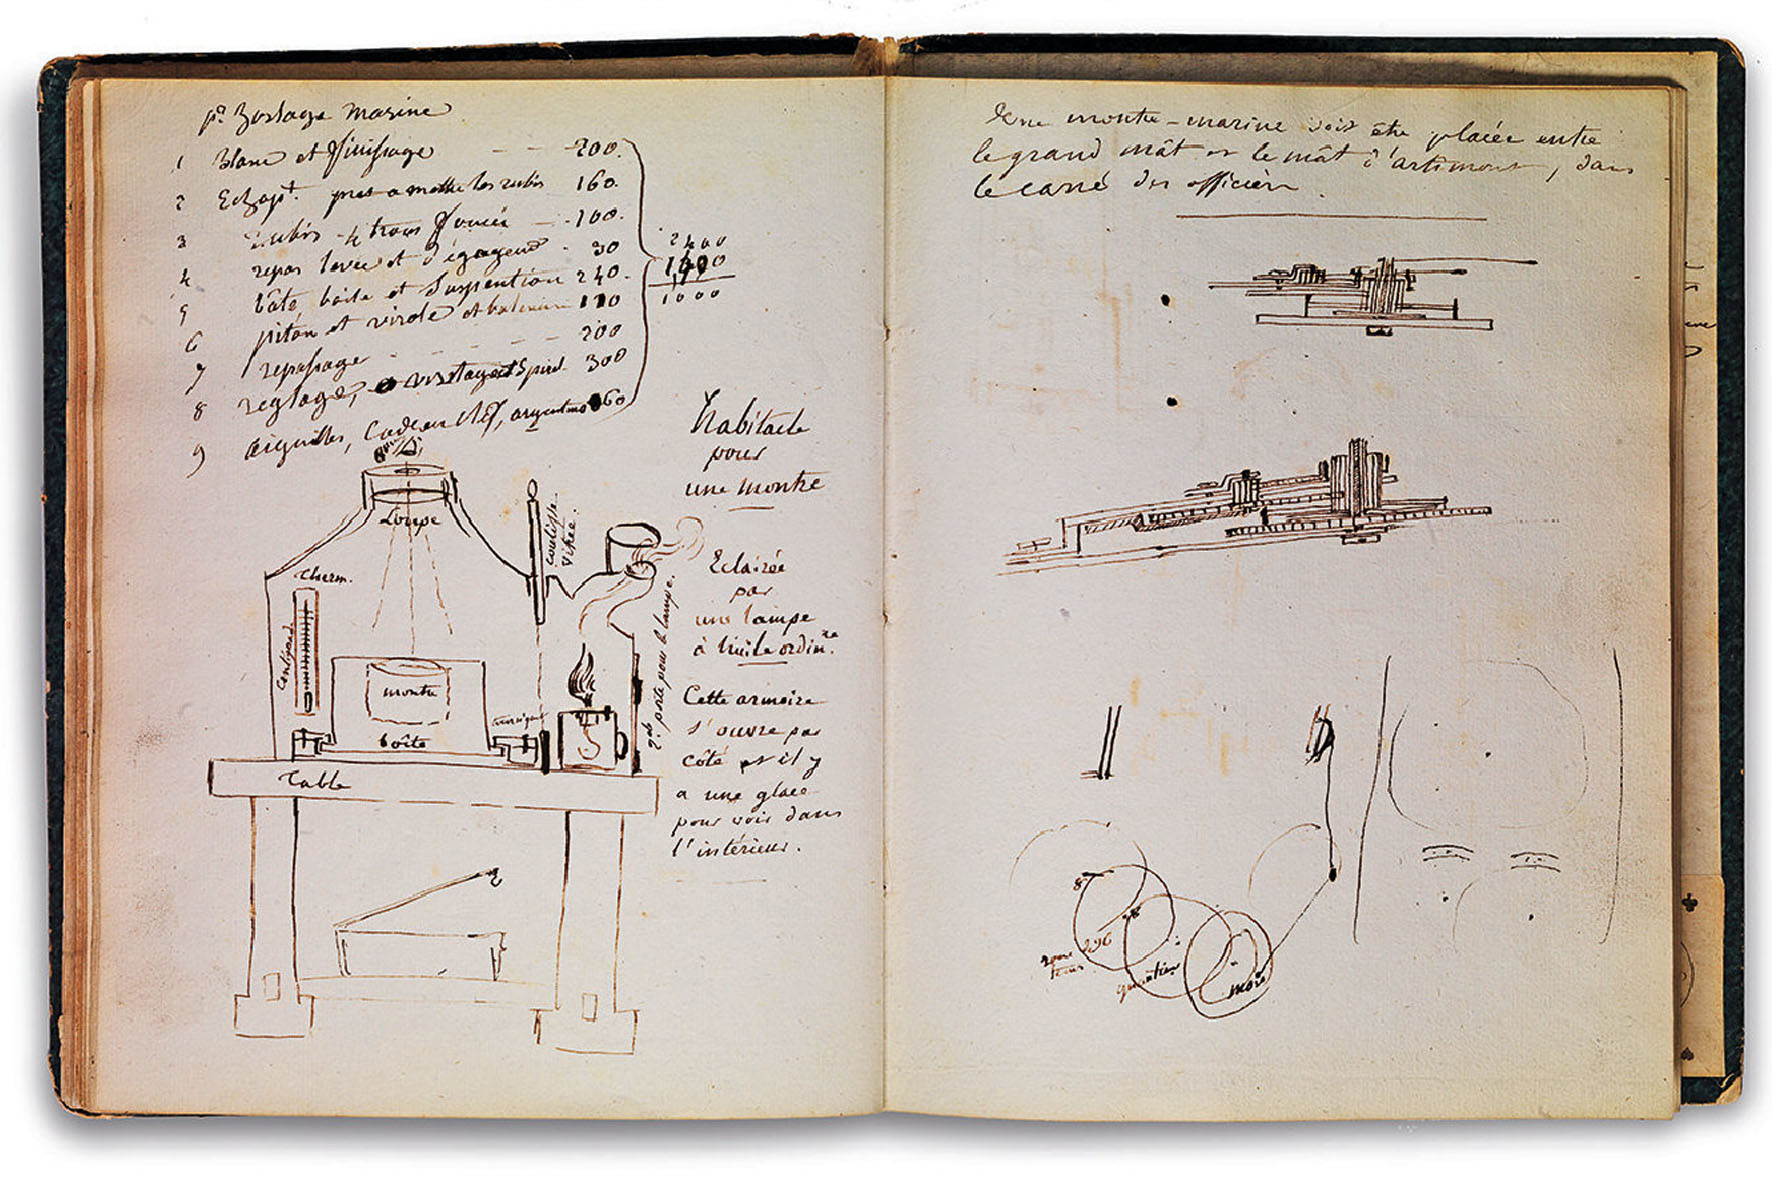 pr horloge marine
1 Blanc et finissage - - 200.
2 Echapt. pret a mettre les rubis 160.
3 rubis 4 trous foncés - 100.
4 repos levée et dégageur - 30
5 bâte, boite et Suspention 240.
6 piton et virole et balancier
7 repassage - - - - 200
8 reglage, et Spiral 300
9 aiguilles, Cadran Clef, argenture 60
2400
1400
1000
habitacle
pour
une montre
Eclairée
par
une lampe
à huile ordinre.
Cette armoire
s'ouvre par
côté et il y
a une glace
pour voir dans
l'intérieur.
Loupe
coulisse
vitrée.
therm.
centigrade
montre
boîte
table
porte pour la lampe.
Une montre-marine doit être placée entre
le grand mât et le mât d'artimont, dans
le carré des officiers.
8
96
roue
mois